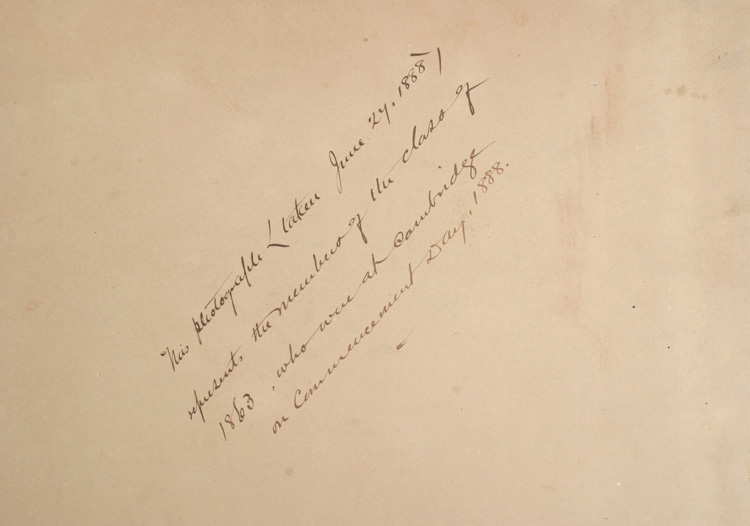 This photograph [taken June 27. 1888]
represents the members of the class of
1863, who were at Cambridge
on Commencement Day, 1888.